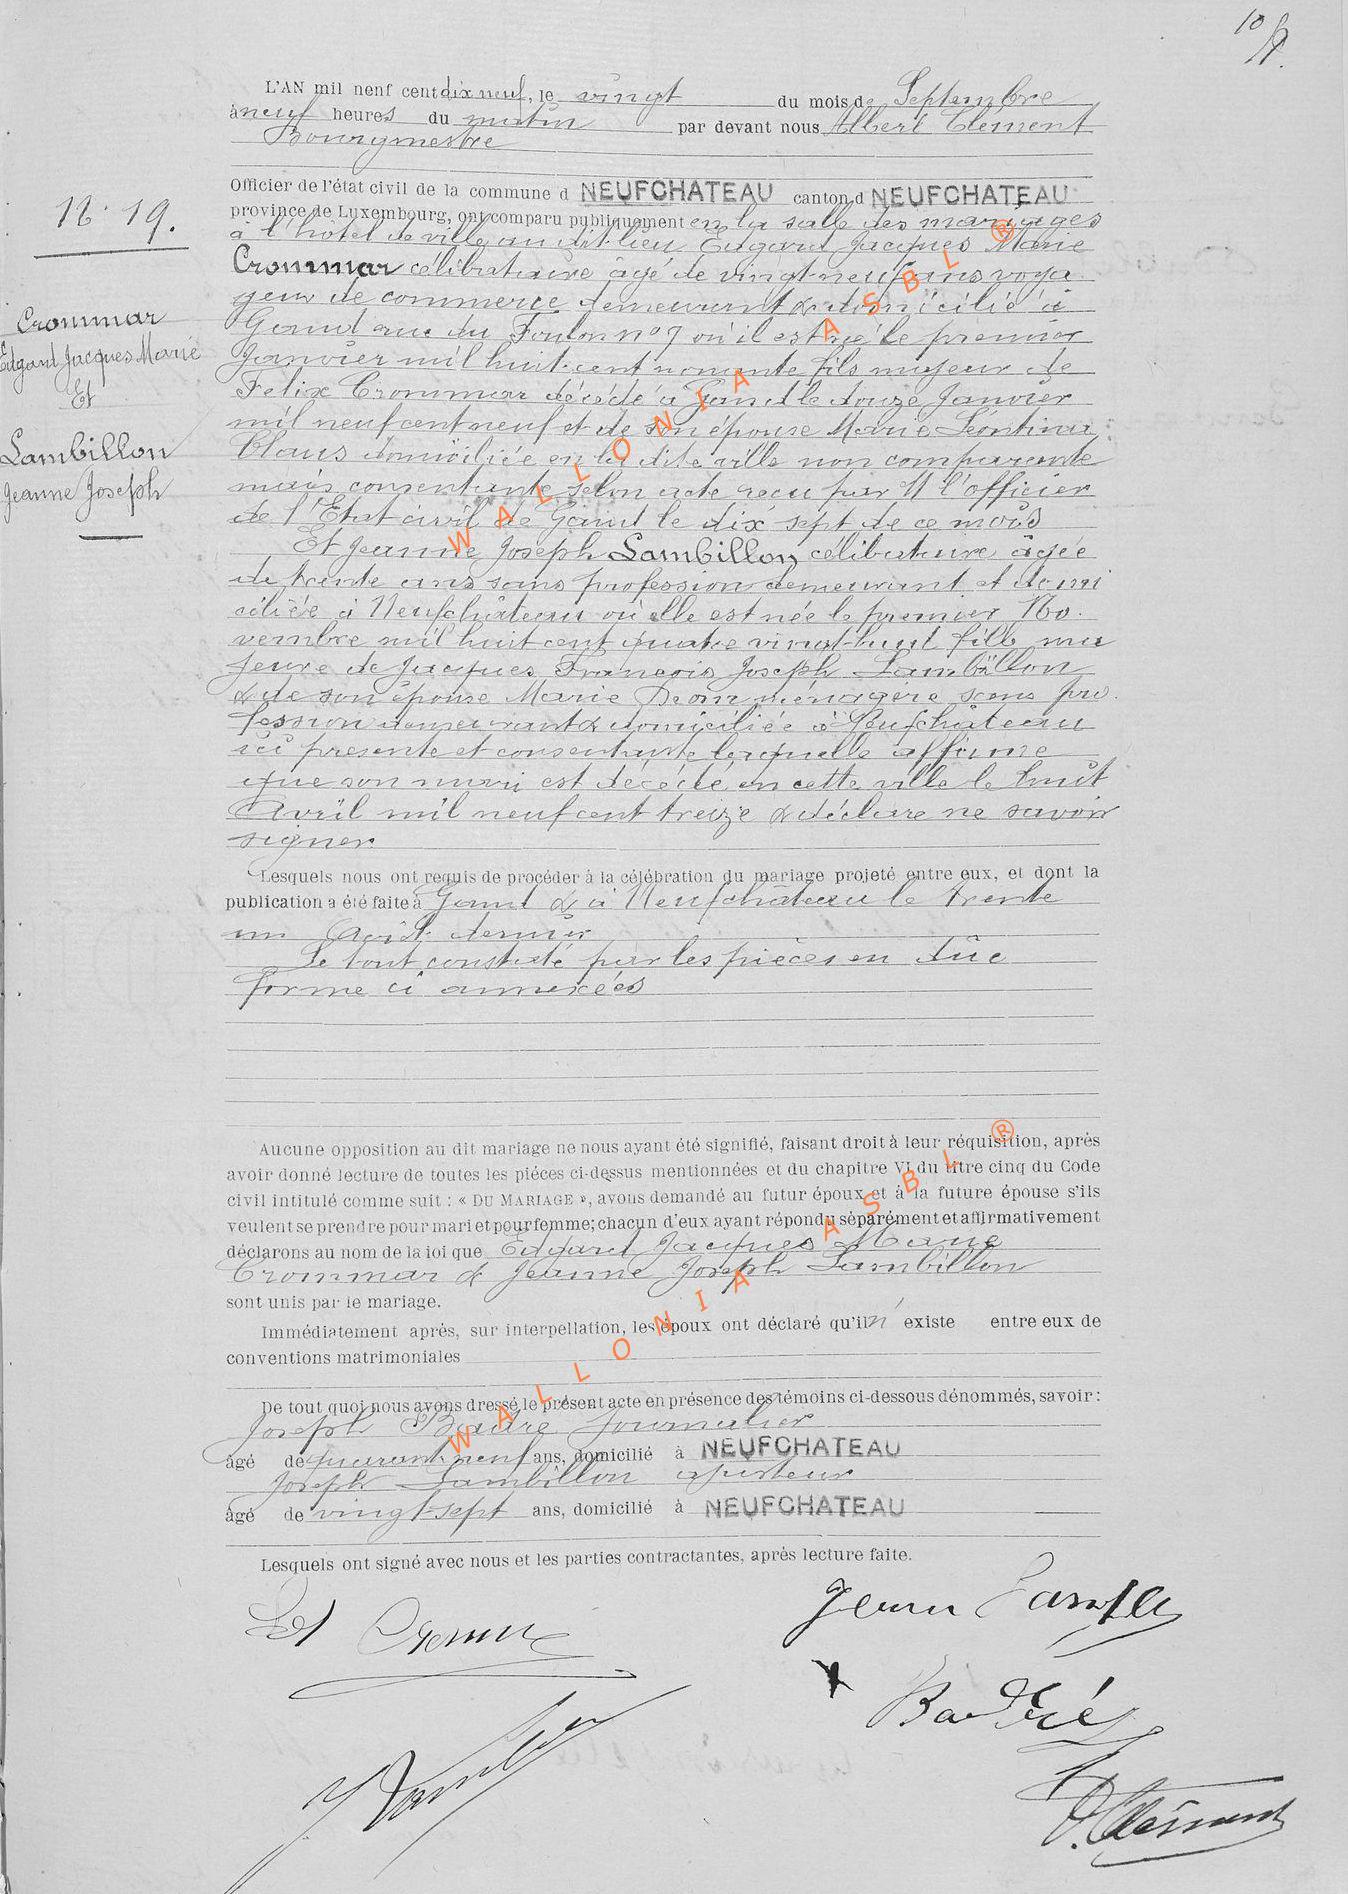 10
L'AN mil neuf cent dix neuf, le vingt du mois de Septembre
à neuf heures du matin par devant nous Albert Clement
Bourgmestre
Officier de l'état civil de la commune d NEUFCHATEAU canton d NEUFCHATEAU
N° 19.
province de Luxembourg, ont comparu publiquement en la salle des mariages
à l'hôtel de ville au dit lieu Edgard Jacques Marie
Crommar célibataire âgé de vingt-neuf ans voya
geur de commerce demeurant & domicilié à
Crommar
Gand rue du Foulon n° 7 où il est né le premier
Edgard Jacques Marie
Janvier mil huit cent nonante fils majeur de
Et
Felix Crommar décédé à Gand le douze Janvier
mil neuf cent neuf et de son épouse Marie Léontine
Lambillon
Claus domiciliée en la dite ville non comparente
Jeanne Joseph
mais consentante selon acte reçu par M l'officier
de l'Etat civil de Gand le dix sept de ce mois
Et Jeanne Joseph Lambillon célibataire âgée
de trente ans sans profession demeurant et domi
ciliée à Neufchâteau où elle est née le premier No.
vembre mil huit cent quatre vingt-huit fille ma
jeure de Jacques François Joseph Lambillon
& de son épouse Marie ménagère sans pro.
fession demeurant & domiciliée à Neufchâteau
ici presente et consentante laquelle affirme
que son mari est décédé en cette ville le huit
Avril mil neuf cent treize & déclare ne savoir
signer
Lesquels nous ont requis de procéder à la célébration du mariage projeté entre eux, et dont la
publication a été faite à Gand & à Neufchâteau le trente
un Août dernier
Le tout constaté par les pièces en dûe
forme ci annexées
Aucune opposition au dit mariage ne nous ayant été signifié, faisant droit à leur réquisition, après
avoir donné lecture de toutes les piéces ci-dessus mentionnées et du chapitre VI du titre cinq du Code
civil intitulé comme suit : « DU MARIAGE », avons demandé au futur époux et à la future épouse s'ils
veulent se prendre pour mari et pour femme; chacun d'eux ayant répondu séparément et affirmativement
déclarons au nom de la loi que Edgard Jacques Marie
Crommar & Jeanne Joseph Lambillon
sont unis par le mariage.
Immédiatement après, sur interpellation, les époux ont déclaré qu'il n'existe entre eux de
conventions matrimoniales
De tout quoi nous avons dressé le présent acte en présence des témoins ci-dessous dénommés, savoir :
Joseph Journalier
âgé de quarante neuf ans, domicilié à NEUFCHATEAU
Joseph Lambillon ajusteur
âgé de vingt-sept ans, domicilié à NEUFCHATEAU
Lesquels ont signé avec nous et les parties contractantes, après lecture faite.
A. Clément
WALLONIA ASBL ®
WALLONIA ASBL ®